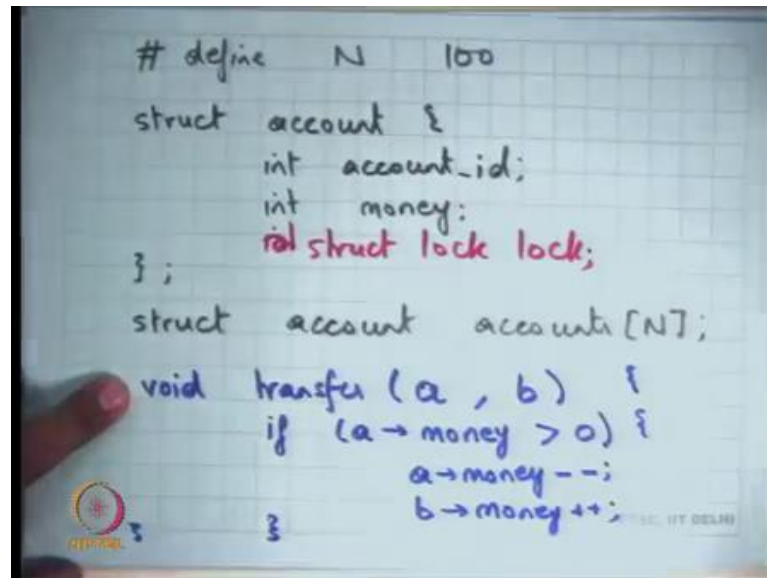 # define N 100
struct account {
int account_id;
int money;
struct lock lock;
};
struct account accounts [N];
void transfer (a, b) {
if (a → money > 0) {
a → money --;
b → money ++;
} }
IIT DELHI
NPTEL